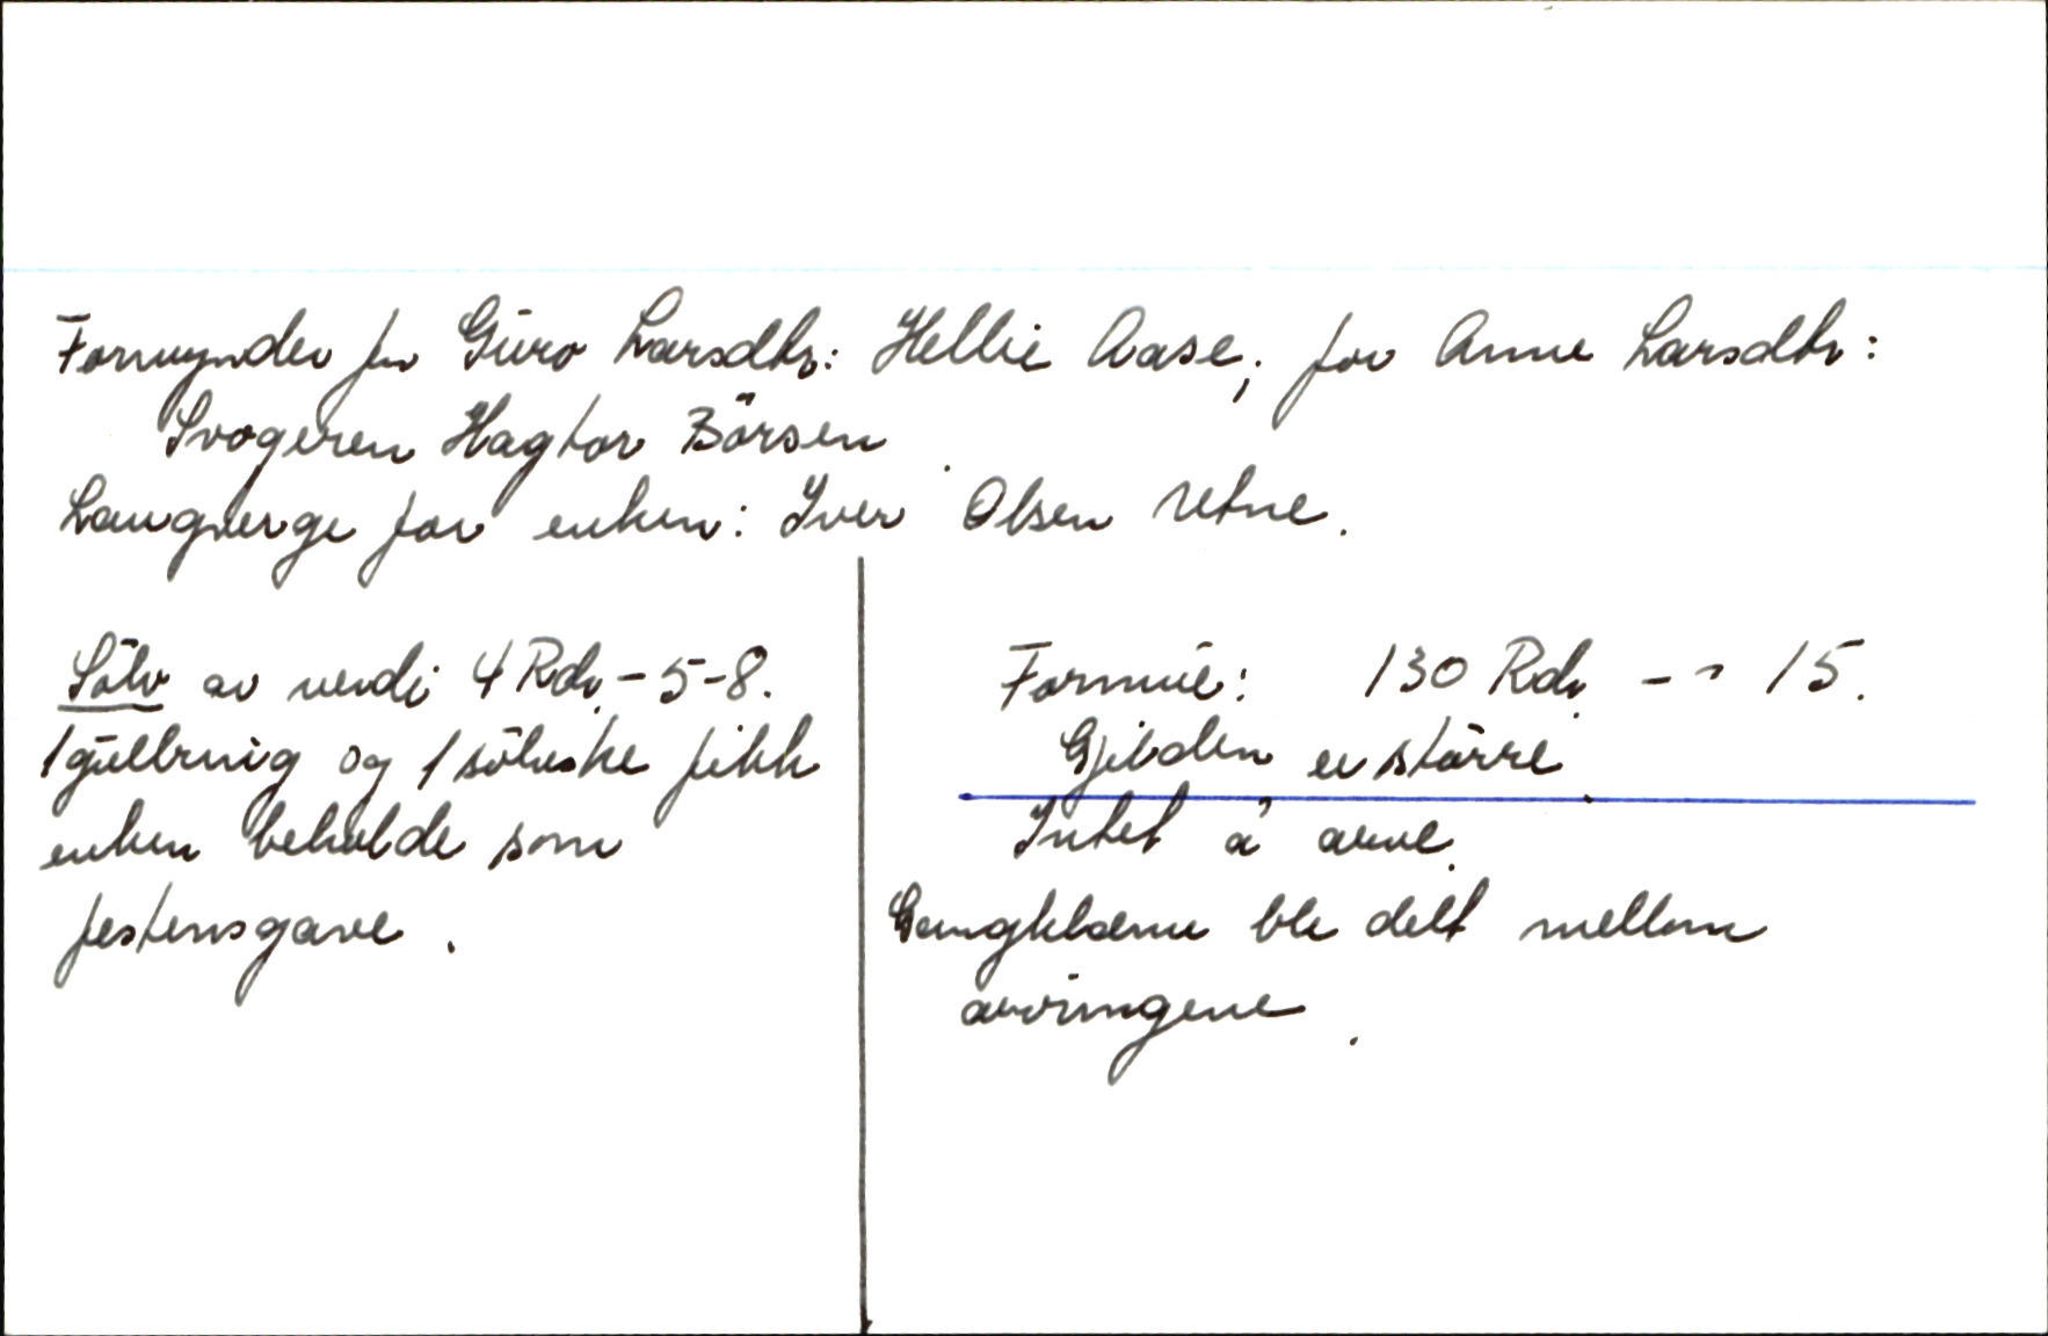 Formynder for Guro Larsdtr: Hellie Aase, for Anne Larsdtr:
Svogeren Hagtor Börsen.
Laugverge for enken: Iver Olsen Utne.
Sölv av verdi 4 Rdr. - 5 - 8.
1 gullring og 1 sölvske fikk
enken beholde som
festensgave.
Formue: 130 Rdr. - - 15.
Gjelden er större.
Intet å arve.
Gangklærne ble delt mellom
arvingene.